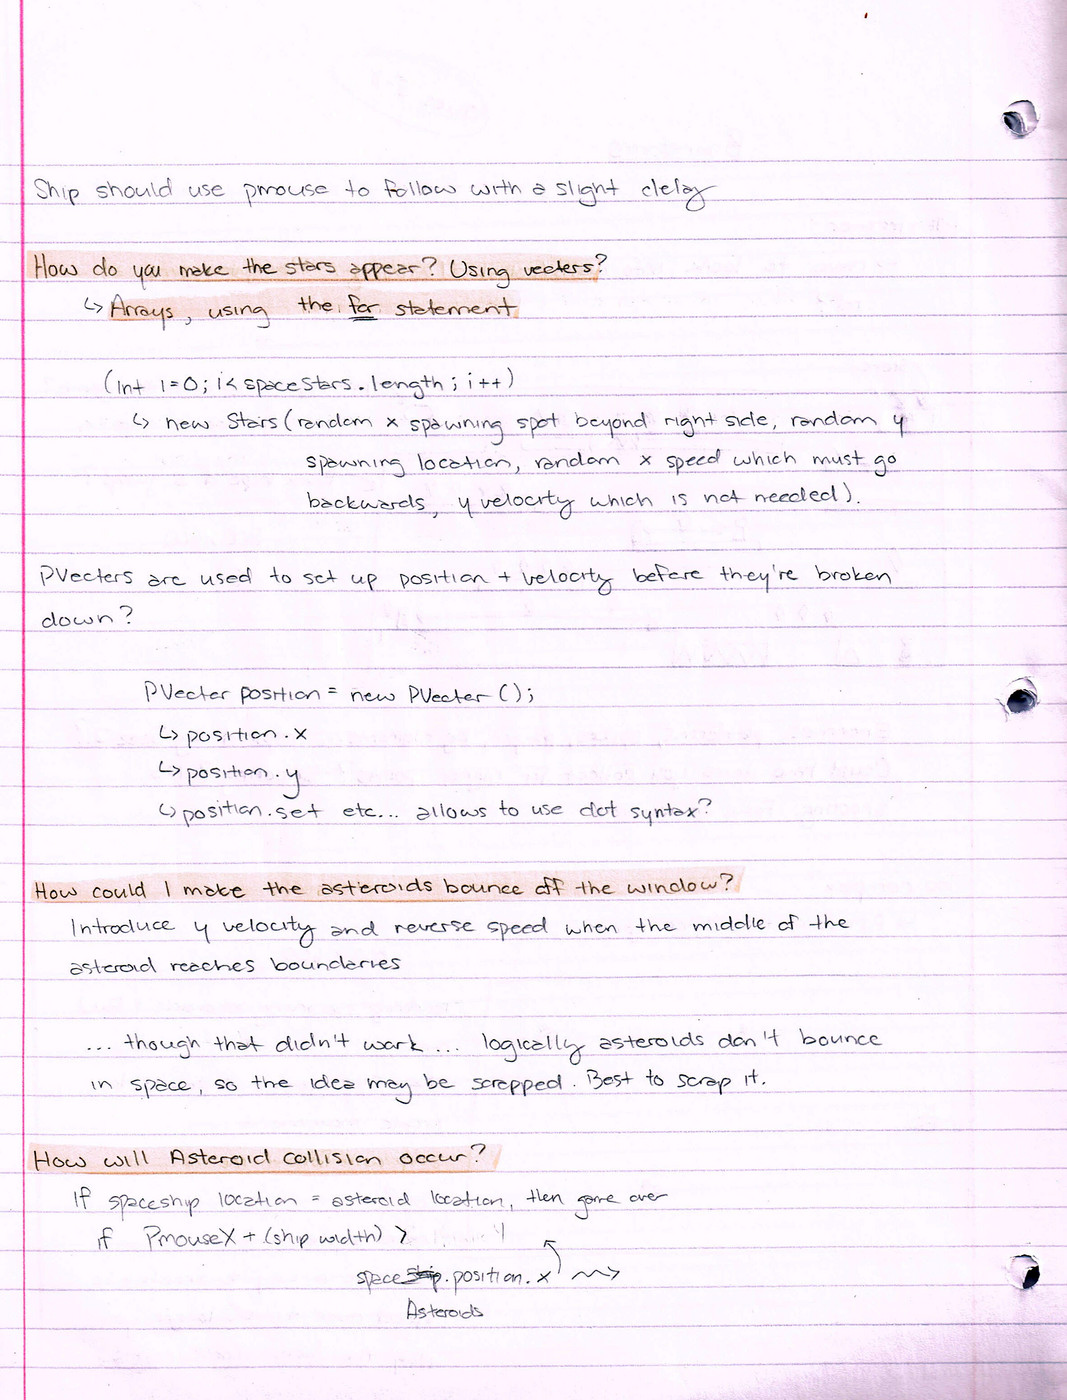 Ship should use pmouse to follow with a slight delay
How do you make the stars appear? Using vecters?
↳ Arrays, using the for statement
(int i=0; i<spaceStars.length; i++)
↳ new Stars(random x spawning spot beyond right side, random y
spawning location, random x speed which must go
backwards, y velocity which is not needed).
PVecters are used to set up position + velocity before they're broken
down?
PVecter position = new PVecter();
↳ position.x
↳ position.y
↳ position.set etc... allows to use dot syntax?
How could I make the asteroids bounce off the window?
Introduce y velocity and reverse speed when the middle of the
asteroid reaches boundaries
... though that didn't work... logically asteroids don't bounce
in space, so the idea may be scrapped. Best to scrap it.
How will Asteroid collision occur?
If spaceship location = asteroid location, then game over
if PmouseX + (ship width) >
space ship.position.x
Asteroids